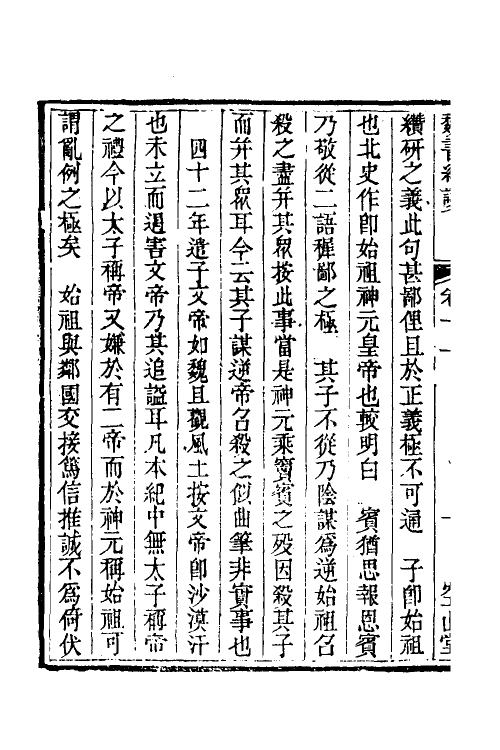 纘研之義此句甚鄙俚且於正義極不可通　子卽始祖
也北史作卽始祖神元皇帝也較明白　賓猶思報恩賓
乃敬從二語稚鄙之極　其子不從乃陰謀爲逆始祖召
殺之盡并其眾按此事當是神元乘竇賓之歿因殺其子
而并其眾耳今云其子謀逆帝召殺之似曲筆非實事也
四十二年遣子文帝如魏且觀風土按文帝卽沙漠汗
也未立而遇害文帝乃其追謚耳凡本紀中無太子稱帝
之禮今以太子稱帝又嫌於有二帝而於神元稱始祖可
謂亂例之極矣　始祖與鄰國交接篤信推誠不爲倚伏